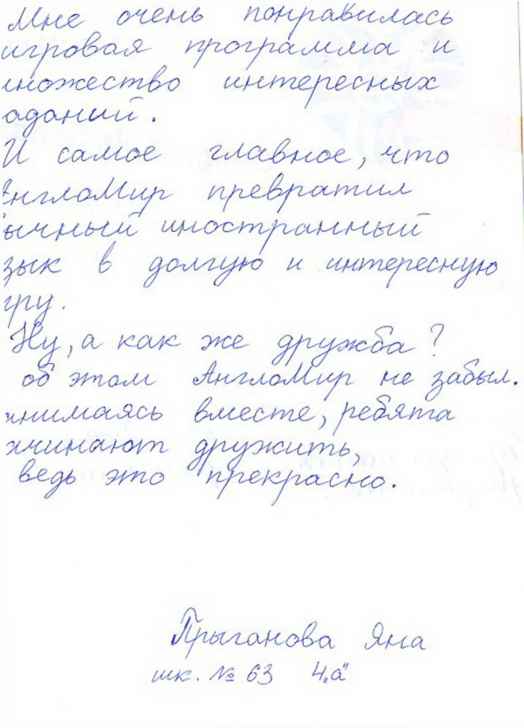 Мне очень понравилась
игровая программа и
множество интересных
аданий.
И самое главное, что
АнглоМир превратил
ычный иностранный
зык в долгую и интересную
гру.
Ну, а как же дружба?
об этом АнглоМир не забыл.
анимаясь вместе, ребята
ачинают дружить,
ведь это прекрасно.
Прыганова Яна
шк. № 63 4„а"